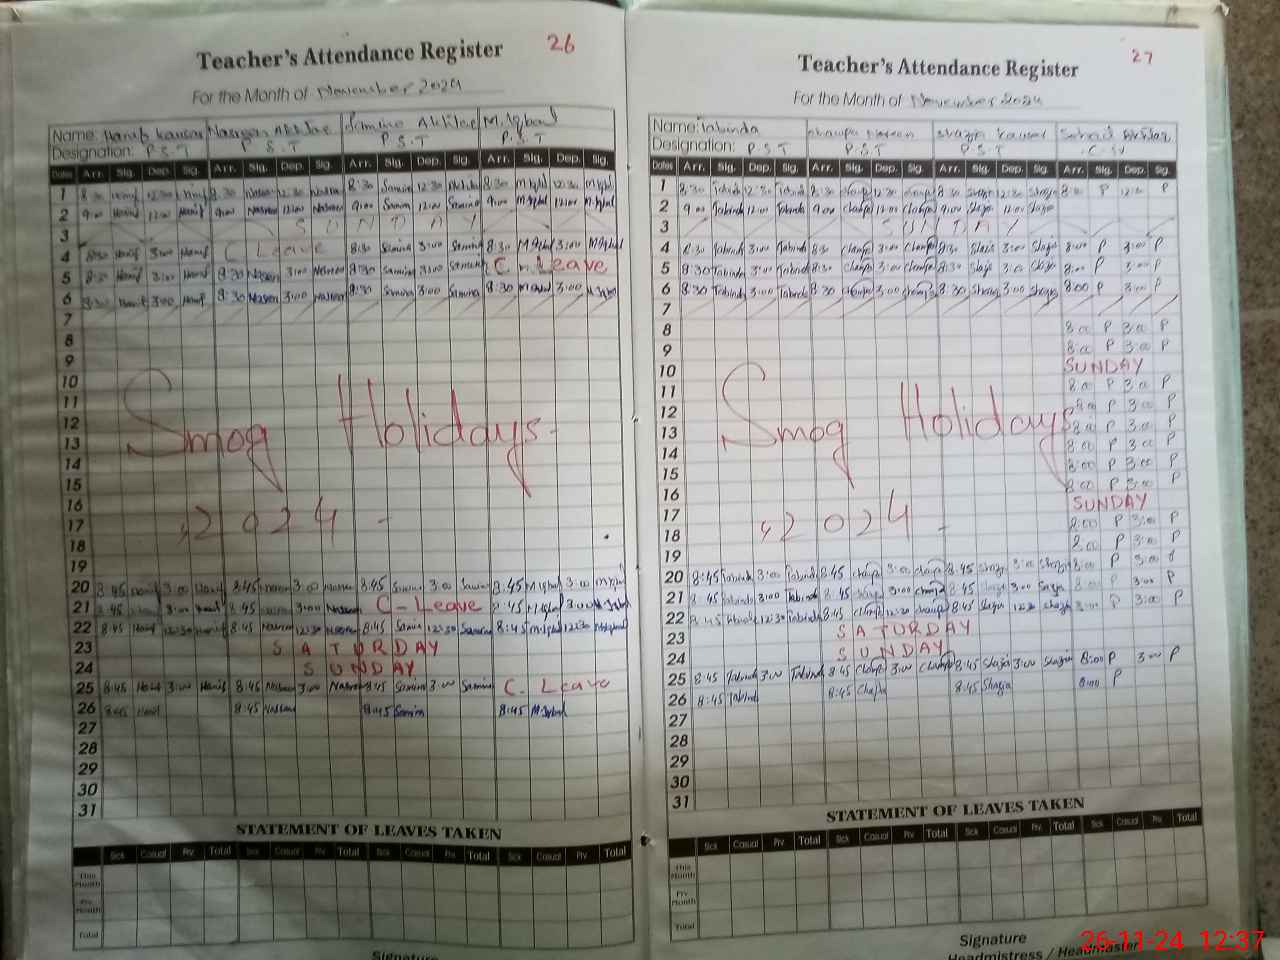 26
Teacher's Attendance Register
For the Month of November 2024
Name: Hanifa Kausar Nasreen Akhtar Samina Akhtar M. Iqbal
Designation: P.S.T P.S.T P.S.T P.S.T
Dates Arr. Sig. Dep. Sig. Arr. Sig. Dep. Sig. Arr. Sig. Dep. Sig. Arr. Sig. Dep. Sig.
1 8:30 12:30 8:30 Nasreen 12:30 Nasreen 8:30 Samina 12:30 8:30 M.Iqbal 12:30 M.Iqbal
2 9:00 Hanif 12:00 Hanif 9:00 Nasreen 12:00 Nasreen 9:00 Samina 12:00 Samina 9:00 M.Iqbal 12:00 M.Iqbal
3 SUNDAY
4 8:30 Hanif 3:00 Hanif C Leave 8:30 Samina 3:00 Samina 8:30 M.Iqbal 3:00 M.Iqbal
5 8:30 Hanif 3:00 Hanif 8:30 Nasreen 3:00 Nasreen 8:30 Samina 3:00 Samina C. Leave
6 8:30 Hanif 3:00 Hanif 8:30 Nasreen 3:00 Nasreen 8:30 Samina 3:00 Samina 8:30 M.Iqbal 3:00 M.Iqbal
7
8
9
10
11
12
Smog Holidays
13
14
15
16
17
2024
18
19
20 8:45 Hanif 3:00 Hanif 8:45 Nasreen 3:00 Nasreen 8:45 Samina 3:00 Samina 8:45 M.Iqbal 3:00 M.Iqbal
21 8:45 Hanif 3:00 Hanif 8:45 Nasreen 3:00 Nasreen C-Leave 8:45 M.Iqbal 3:00 M.Iqbal
22 8:45 Hanif 12:30 Hanif 8:45 Nasreen 12:30 Nasreen 8:45 Samina 12:30 Samina 8:45 M.Iqbal 12:30 M.Iqbal
23 SATURDAY
24 SUNDAY
25 8:45 Hanif 3:00 Hanif 8:45 Nasreen 3:00 Nasreen 8:45 Samina 3:00 Samina C. Leave
26 8:45 Hanif 8:45 Nasreen 8:45 Samina 8:45 M.Iqbal
27
28
29
30
31
STATEMENT OF LEAVES TAKEN
Sick Casual Prv. Total Sick Casual Prv. Total Sick Casual Prv. Total Sick Casual Prv. Total
This Month
Prv. Month
Total
Signature
27
Teacher's Attendance Register
For the Month of November 2024
Name: Tabinda Shazia Kausar Sohail Akhtar
Designation: P.S.T P.S.T P.S.T
Dates Arr. Sig. Dep. Sig. Arr. Sig. Dep. Sig. Arr. Sig. Dep. Sig. Arr. Sig. Dep. Sig.
1 8:30 Tabinda 12:30 Tabinda 8:30 12:30 8:30 Shazia 12:30 Shazia 8:00 P 12:30 P
2 9:00 Tabinda 12:00 Tabinda 9:00 12:00 9:00 Shazia 12:00 Shazia
3 SUNDAY
4 8:30 Tabinda 3:00 Tabinda 8:30 3:00 8:30 Shazia 3:00 Shazia 8:00 P 3:00 P
5 8:30 Tabinda 3:00 Tabinda 8:30 3:00 8:30 Shazia 3:00 Shazia 8:00 P 3:00 P
6 8:30 Tabinda 3:00 Tabinda 8:30 3:00 8:30 Shazia 3:00 Shazia 8:00 P 3:00 P
7
8 8:00 P 3:00 P
9 8:00 P 3:00 P
10 SUNDAY
11 8:00 P 3:00 P
12 8:00 P 3:00 P
Smog Holidays
13 8:00 P 3:00 P
14 8:00 P 3:00 P
15 8:00 P 3:00 P
16 8:00 P 3:00 P
17 SUNDAY
2024
18 8:00 P 3:00 P
19 8:00 P 3:00 P
20 8:45 Tabinda 3:00 Tabinda 8:45 3:00 8:45 Shazia 3:00 Shazia 8:00 P 3:00
21 8:45 Tabinda 3:00 Tabinda 8:45 3:00 8:45 Shazia 3:00 Shazia 8:00 P 3:00 P
22 8:45 Tabinda 12:30 Tabinda 8:45 12:30 8:45 Shazia 12:30 Shazia 8:00 P 3:00 P
23 SATURDAY
24 SUNDAY
25 8:45 Tabinda 3:00 Tabinda 8:45 3:00 8:45 Shazia 3:00 Shazia 8:00 P 3:00 P
26 8:45 Tabinda 8:45 8:45 Shazia 8:00 P
27
28
29
30
31
STATEMENT OF LEAVES TAKEN
Sick Casual Prv. Total Sick Casual Prv. Total Sick Casual Prv. Total Sick Casual Prv. Total
This Month
Prv. Month
Total
Signature
Headmistress / Headmaster
26-11-24 12:37